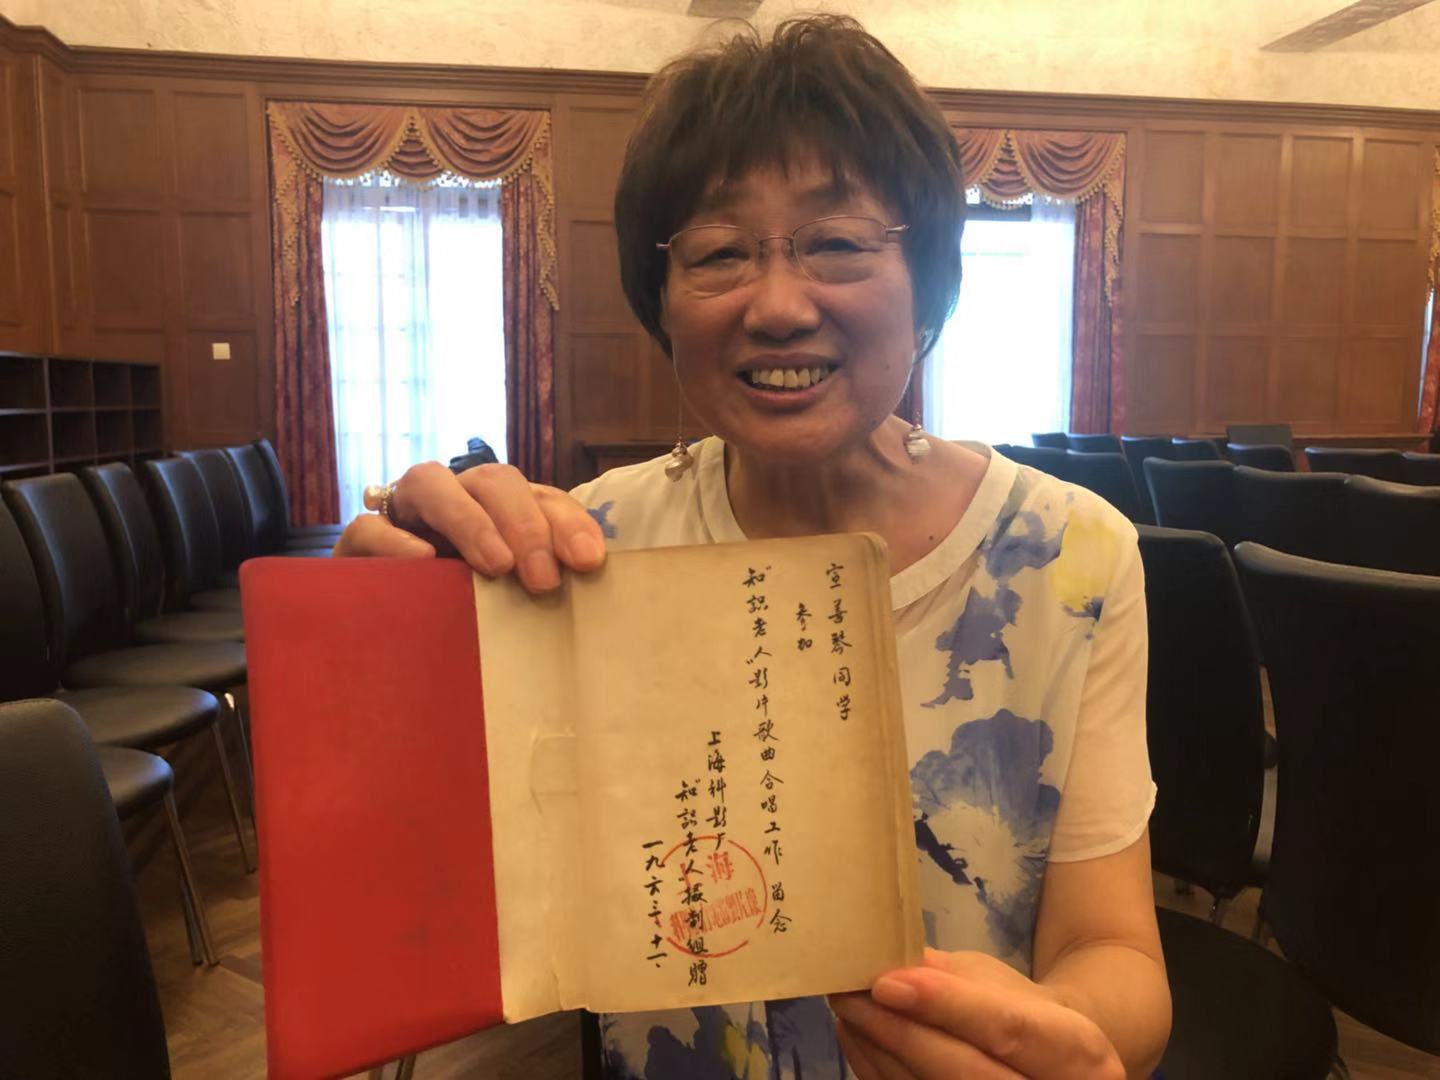 宣善琴同学
参加
“知识老人”影片歌曲合唱工作 留念
上海科影厂
“知识老人”摄制组赠
一九六三·十一·